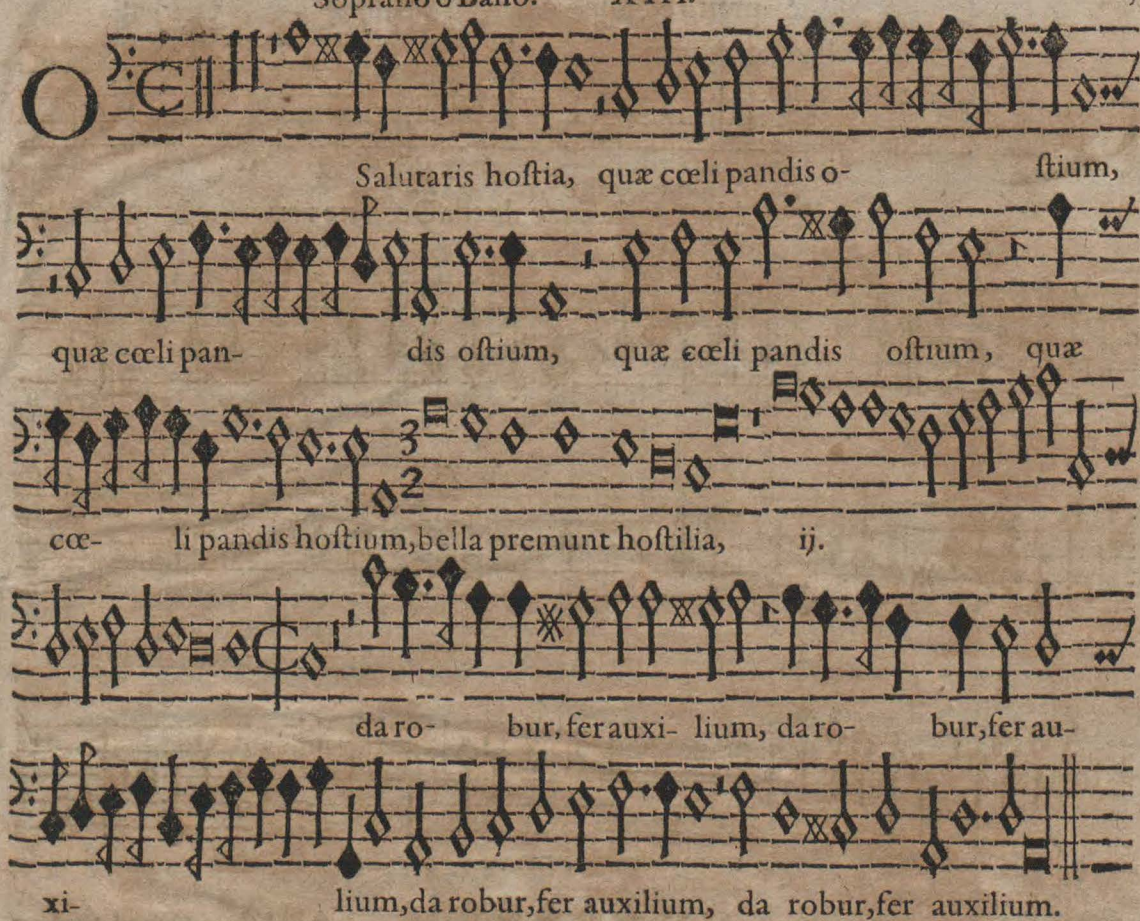 Soprano ò Basso. XIII.
O
Salutaris hoſtia, quæ cœli pandis o- ſtium,
quæ cœli pan- dis oſtium, quæ cœli pandis oſtium, quæ
cœ- li pandis hoſtium, bella premunt hoſtilia, ij.
3
2
da ro- bur, fer auxi- lium, da ro- bur, fer au-
xi- lium, da robur, fer auxilium, da robur, fer auxilium.